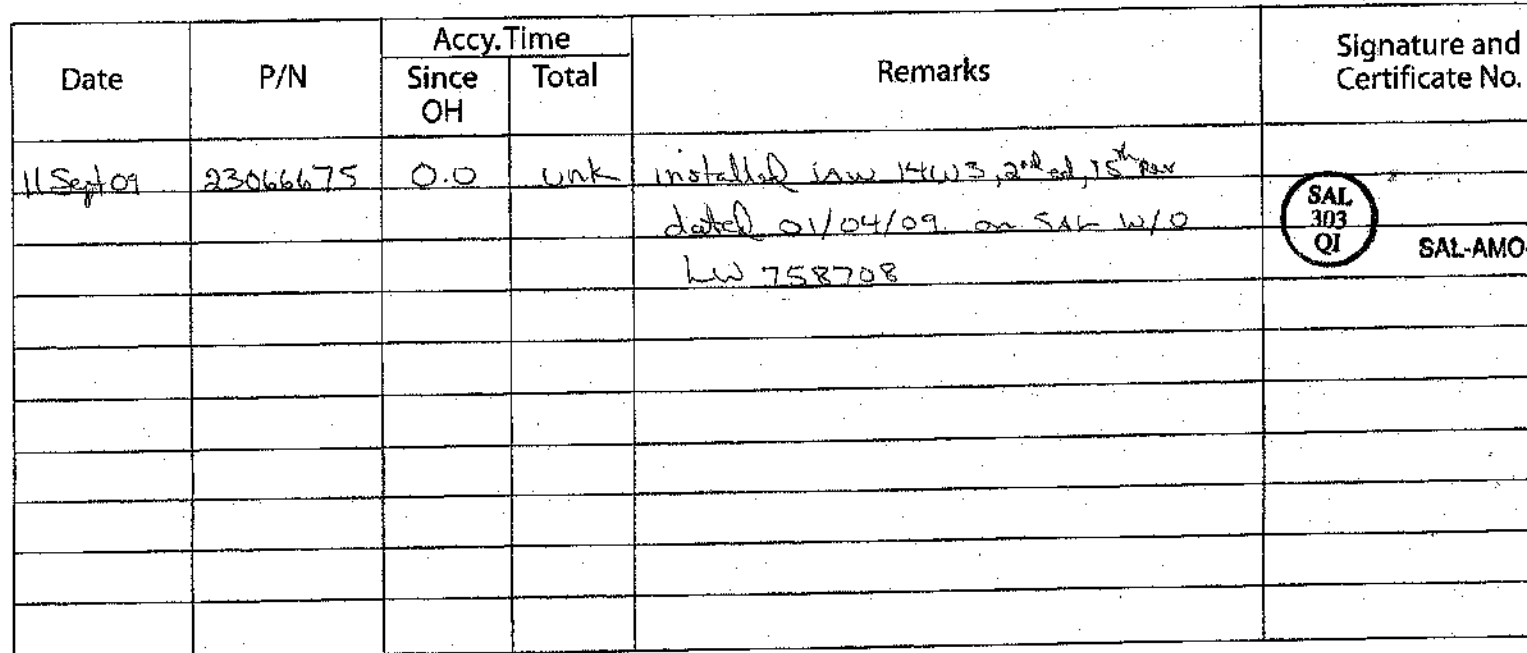 Accy. Time
Date P/N Since OH Total Remarks Signature and Certificate No.
11 Sept 09 23066675 0.0 unk installed iaw 14W3, 2nd ed, 15th Rev
dated 01/04/09 on SAL W/O
LW 758708
SAL
303
QI
SAL-AMO-